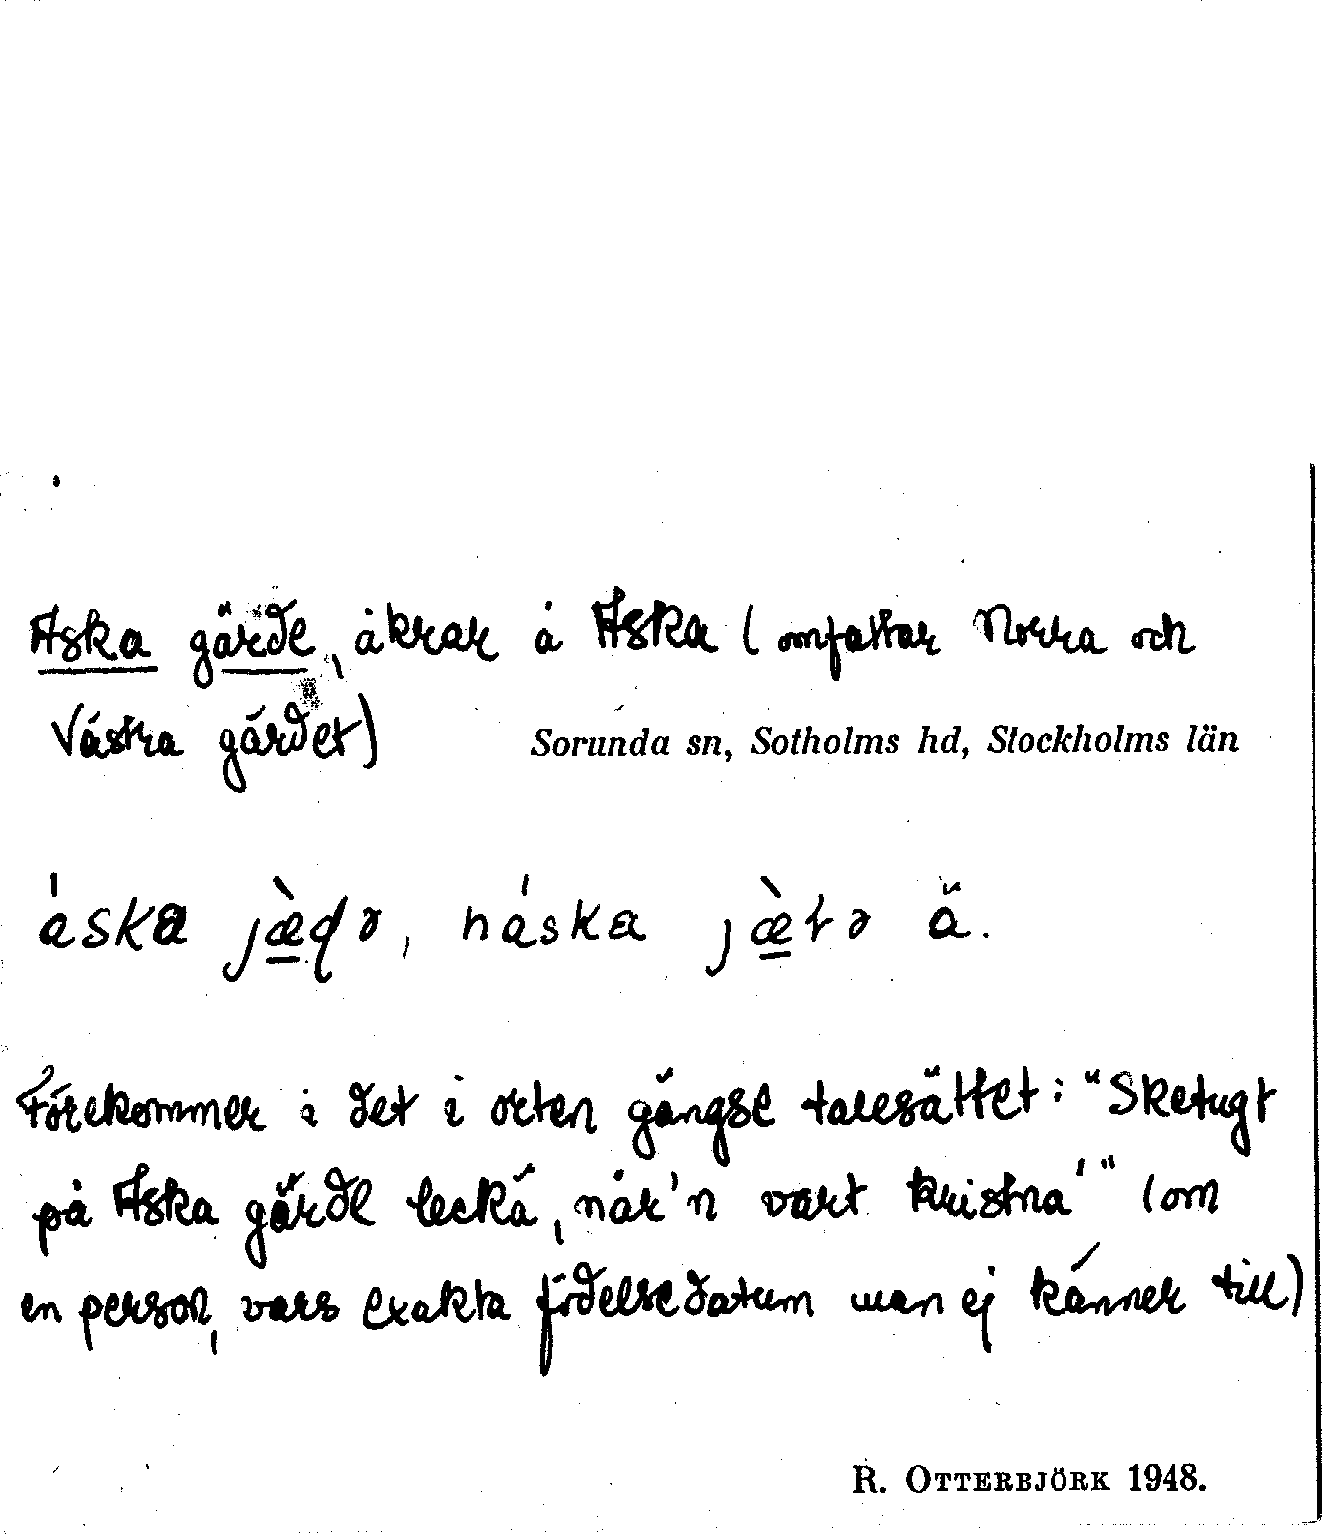 Aska gärde, åkrar å Aska (omfattar Norra och
Västra gärdet) Sorunda sn, Sotholms hd, Stockholms län
áska jæ̀də, náska jæ̀tə ä.
Förekommer i det i orten gängse talesättet: "Sketugt
på Aska gärde leckä, när'n vart kristna'" (om
en person, vars exakta födelsedatum man ej känner till)
R. OTTERBJÖRK 1948.